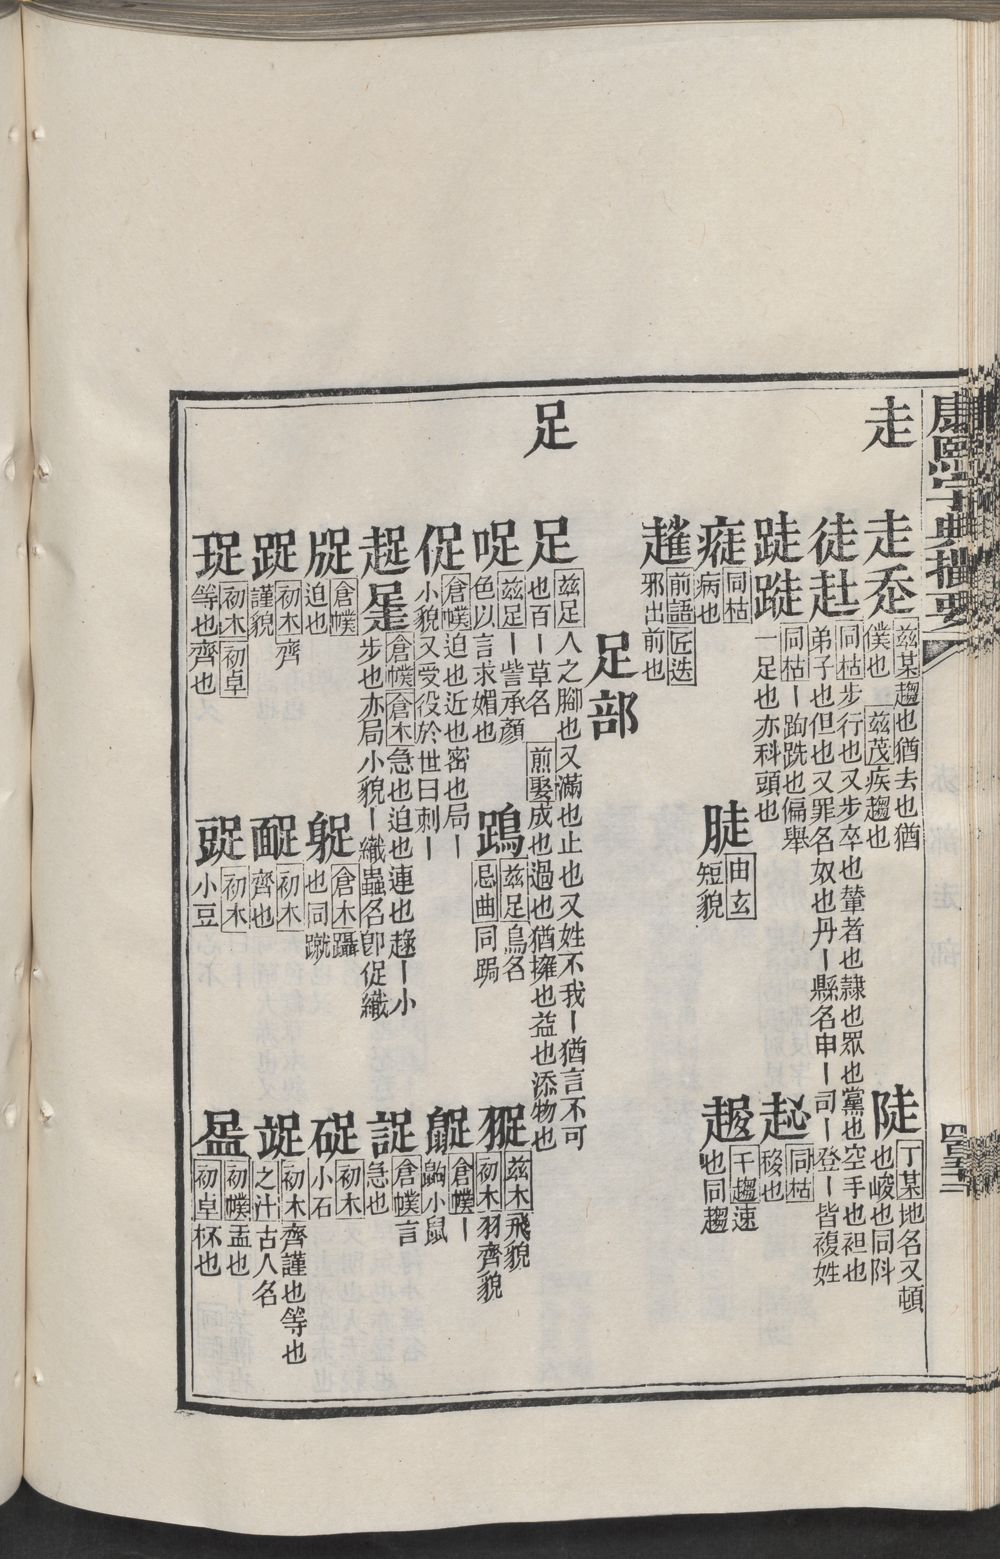 康熙字典撮要
四百五三
走
走赱
茲某趨也猶去也猶
僕也 茲茂疾趨也
陡
丁某地名又頓
也峻也同阧
徒𨑒
同枯步行也又步卒也輦者也隷也眾也黨也空手也袒也
弟子也但也又罪名奴也丹丨縣名申丨司丨登丨皆複姓
同枯丨跔跣也偏舉
一足也亦科頭也
同枯
移也
瘄
同枯
病也
由玄
短貌
干趨速
也同趨
前語匠迭
邪出前也
足部
足
足
茲足人之腳也又滿也止也又姓不我丨猶言不可
也百丨草名 煎娶成也過也猶擁也益也添物也
哫
茲足丨訾承顏
色以言求媚也
茲足鳥名
忌曲同跼
茲木飛貌
初木羽齊貌
促
倉幞迫也近也密也局丨
小貌又受役於世曰刺丨
倉幞丨
鼩小鼠
倉幞倉木急也迫也連也趢丨小
步也亦局小貌丨織蟲名卽促織
倉幞言
急也
倉幞
迫也
倉木躡
也同蹴
初木
小石
初木齊
謹貌
初木
齊也
初木齊謹也等也
之汁古人名
珿
初木初卓
等也齊也
初木
小豆
初幞盂也
初卓杯也